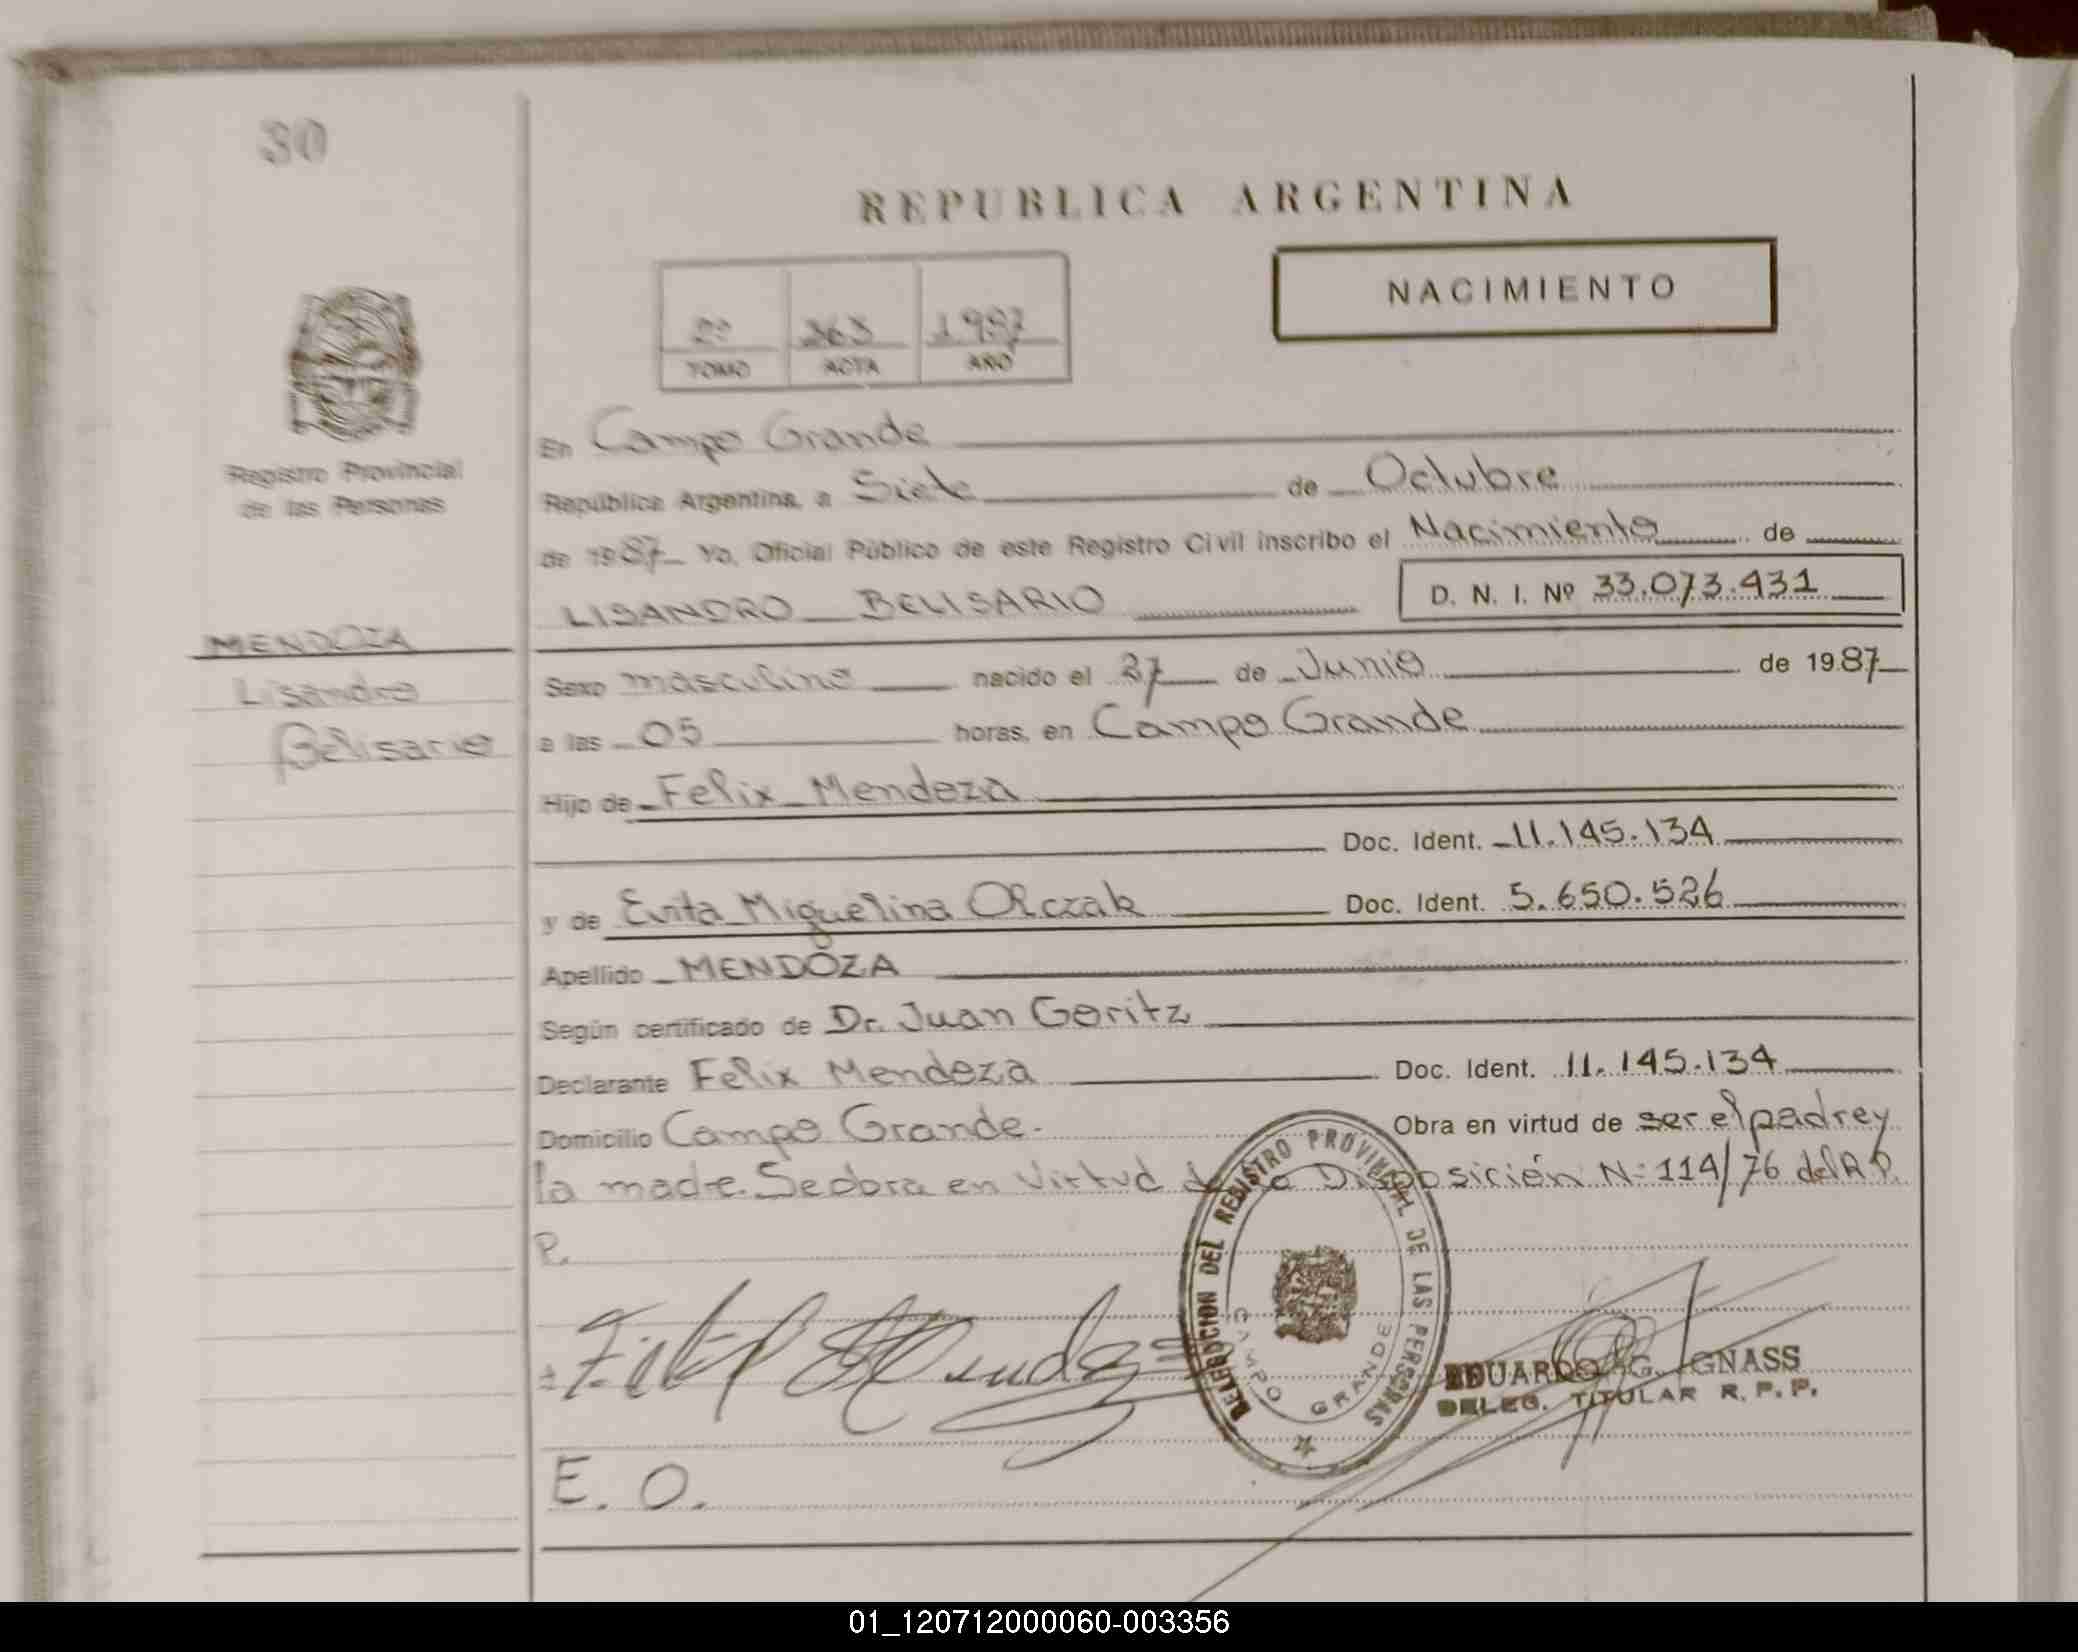 30
REPUBLICA ARGENTINA
NACIMIENTO
2º 363 1987
TOMO ACTA AÑO
Registro Provincial
de las Personas
En Campo Grande
República Argentina, a Siete de Octubre
de 1987 Yo, Oficial Público de este Registro Civil inscribo el Nacimiento de
LISANDRO BELISARIO D. N. I. Nº 33.073.431
MENDOZA
Lisandro
Belisario
Sexo masculino nacido el 27 de Junio de 1987
a las 05 horas, en Campo Grande
Hijo de Felix Mendoza
Doc. Ident. 11.145.134
y de Evita Miguelina Olczak Doc. Ident. 5.650.526
Apellido MENDOZA
Según certificado de Dr. Juan Goritz
Declarante Felix Mendoza Doc. Ident. 11.145.134
Domicilio Campo Grande. Obra en virtud de ser el padre y
la madre. Se obra en virtud de la Disposición Nº 114/76 del R.P.
P.
DELEGACION DEL REGISTRO PROVINCIAL DE LAS PERSONAS
CAMPO GRANDE
EDUARDO G. GNASS
DELEG. TITULAR R. P. P.
E. O.
01_120712000060-003356